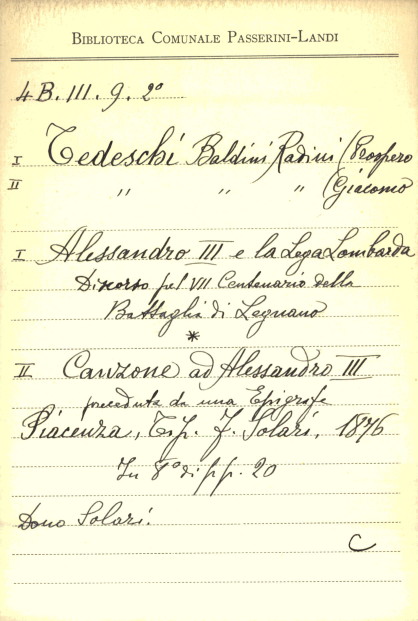 BIBLIOTECA COMUNALE PASSERINI-LANDI
4 B. III. 9. 2º
I Tedeschi Baldini Radini (Prospero
II " " " (Giacomo
I Alessandro III e la Lega Lombarda
Discorso pel VII Centenario della
Battaglia di Legnano
*
II Canzone ad Alessandro III
preceduta da una Epigrafe
Piacenza, Tip. F. Solari, 1876
In 8º di pp. 20
Dono Solari.
C